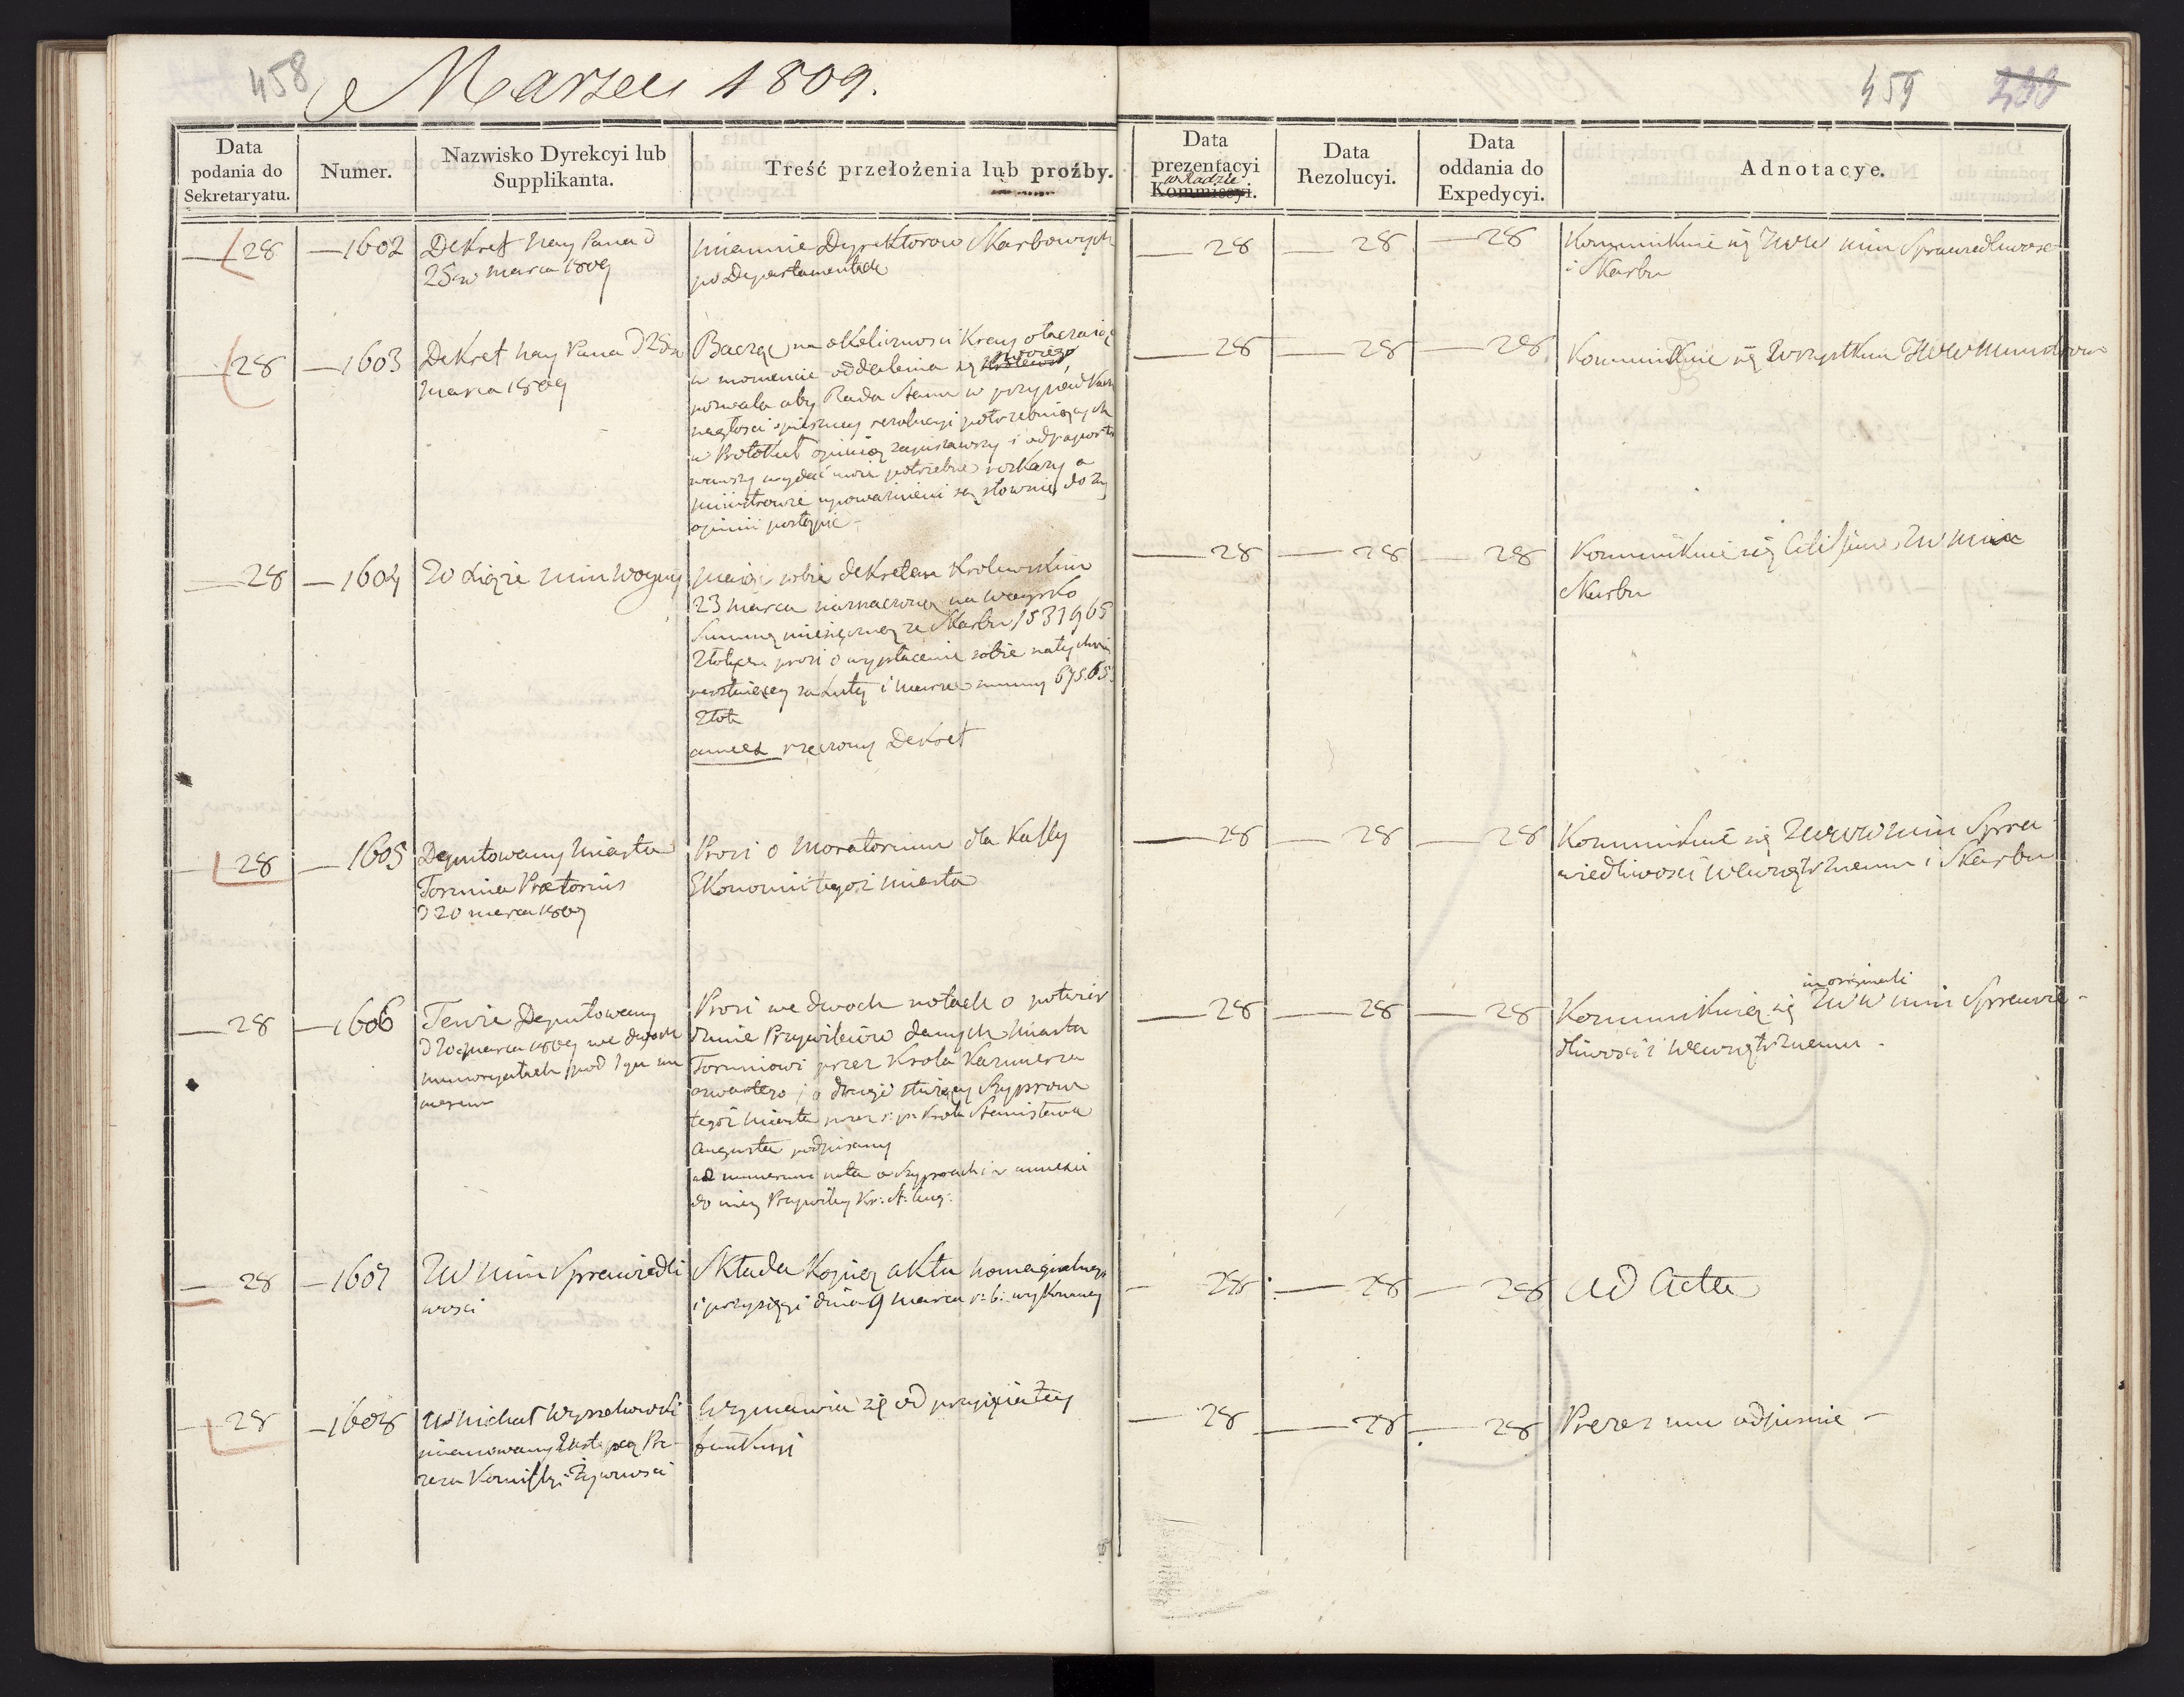 458
Marzec 1809.
459
Data podania do Sekretaryatu.
Numer.
Nazwisko Dyrekcyi lub Supplikanta.
Treść przełożenia lub proźby.
Data prezentacyi w Radzie Kommissyi.
Data Rezolucyi.
Data oddania do Expedycyi.
Adnotacye.
28 — 1602
Dekret Nay Pana d
25go marca 1809
Mianuie Dyrektorow Skarbowych
po Departamentach
28 — 28 — 28
Kommunikuie się min Sprawiedliwosc
i Skarbu
28 — 1603
Dekret Nay Pana d 25
marca 1809
Bacząc na okoliczności Kray otaczaiące
w momencie oddalenia się swoiego
pozwala aby Rada Stanu w przypadkach
nagłości spieszney rezolucyi potrzebuiących
w Protokuł opinią zapisawszy i
wydać może potrzebne rozkazy a
Ministrowie upoważnieni są stownie do tey
opinii postąpić
28 — 28 — 28
Kommunikuie się Wszystkim JWW Ministrom
28 — 1604
Xiąże Min Woyny
Maiąc sobie dekretem Krolewskim
23 marca naznaczoną na Woysko
Summę miesięczną ze Skarbu 1531965
Złotych prosi o wypłacenie sobie natychmia
za Luty i Marzec summy
Złot
annex rzeczony Dekret
28 — 28 — 28
Kommunikuie się JW Min
Skarbu
28 — 1605
Deputowany Miasta
Torunia Prætorius
d 20 marca 1809
Prosi o Moratorium dla Kassy
Ekonomii tegoż miasta
28 — 28 — 28
Kommunikuie się JWWW Min Spra
wiedliwości Wewnętrznemu i Skarbu
28 — 1606
Tenże Deputowany
d 20 marca 1809 we dwoch
memoryałach pod tym nu
merem
Prosi we dwoch notach o potwier
dzenie Przywileiów danych Miastu
Toruniowi przez Krola Kazimierza
czwartego, a drugi służący Szyprom
tegoż Miasta przez ś: p: Krola Stanisława
Augusta podpisany
ad numerum nota o Szyprach i w annexie
do niey Przywiley Kr: St: Aug:
28 — 28 — 28
in originali
Kommunikuią się JWW Min Sprawie-
dliwości i Wewnętrznemu -
28 — 1607
JW Min Sprawiedli
wości
Składa Kopię aktu homagialnego
i przysięgi dnia 9 marca r: b: wykonaney
28 — 28 — 28
Ad Acta
28 — 1608
Michał Wyszkowski
mianowany Zastępcą Pre-
zesa Komissyi Żywności
Wymawia się od przyięcia tey
funkcyi
28 — 28 — 28
Prezes mu odpisuie -